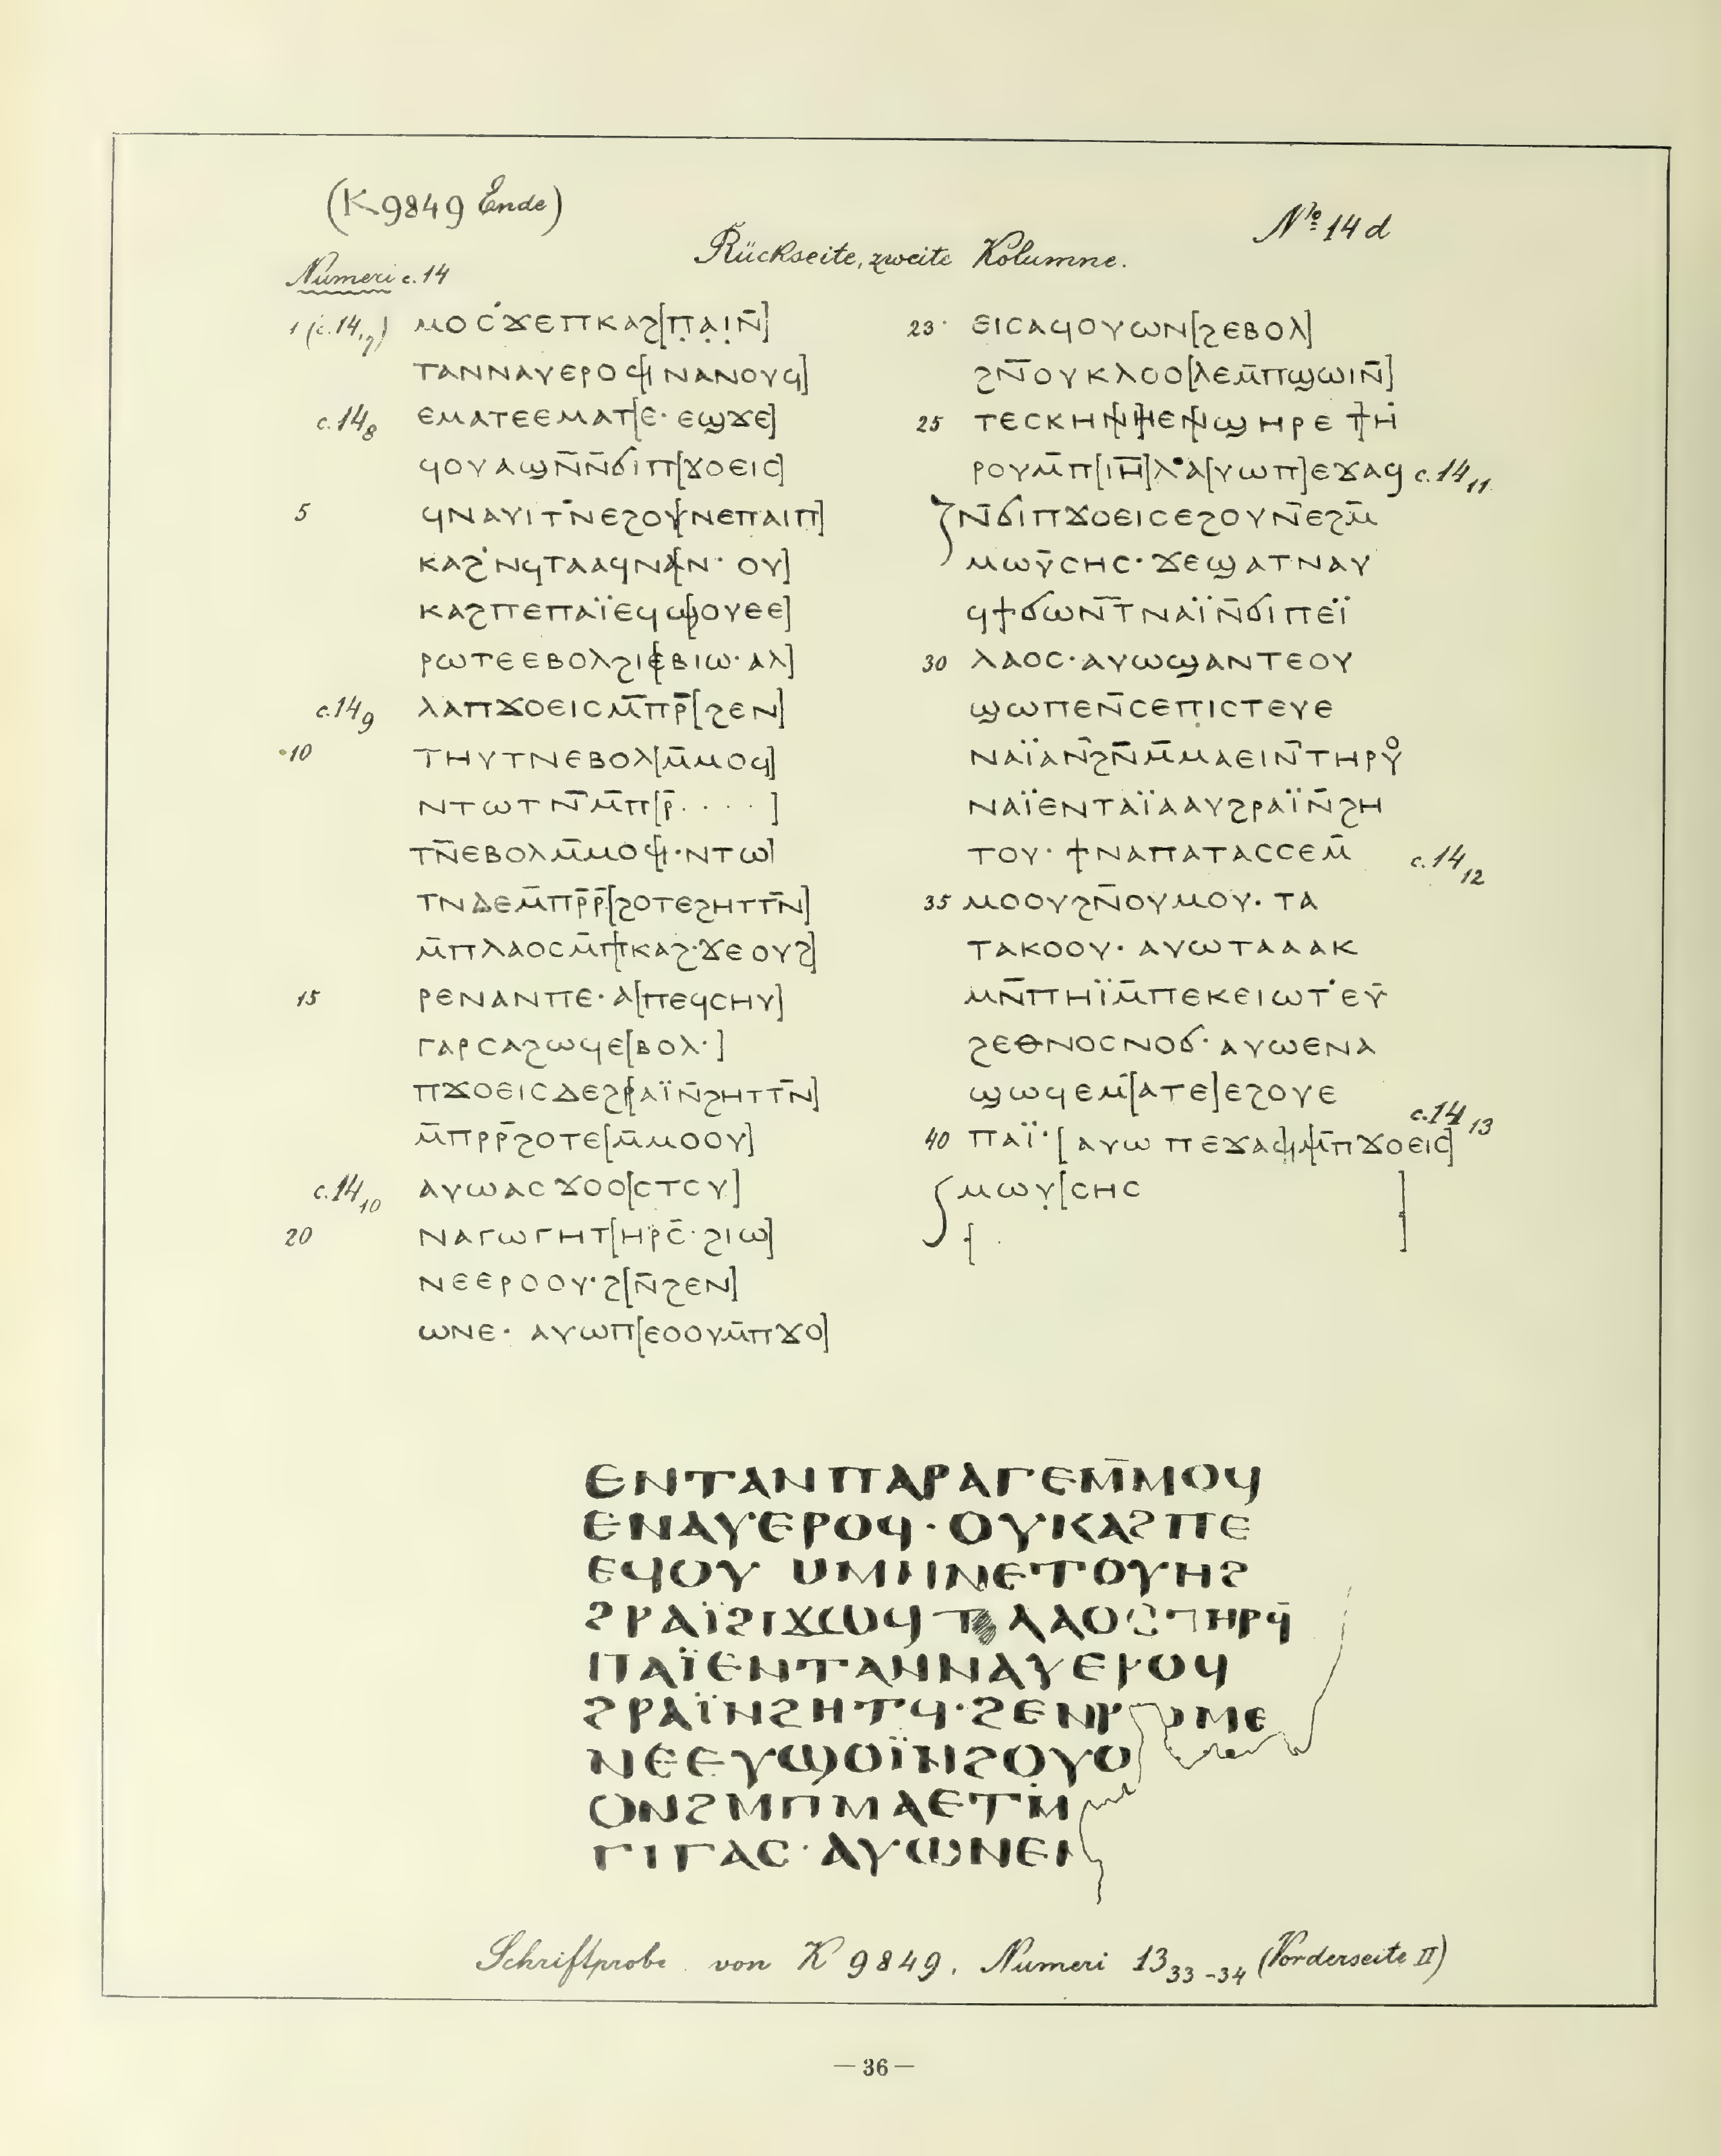 (K 9849 Ende)
Nº 14 d
Rückseite, zweite Kolumne.
Numeri c. 14
1 (c. 14,7) ⲙⲟⲥ ϫⲉⲡⲕⲁϩ[ⲡⲁⲓⲛ̄]
ⲧⲁⲛⲛⲁⲩⲉⲣⲟϥ[ ⲛⲁⲛⲟⲩϥ]
c. 14 8 ⲉⲙⲁⲧⲉⲉⲙⲁⲧ[ⲉ· ⲉϣϫⲉ]
ϥⲟⲩⲁϣⲛ̄ⲛ̄ϭⲓⲡ[ϫⲟⲉⲓⲥ]
5 ϥⲛⲁϫⲓⲧⲛ̄ⲉϩⲟⲩ[ⲛⲉⲡⲁⲓⲡ]
ⲕⲁϩ·ⲛϥⲧⲁⲁϥⲛⲁ[ⲛ· ⲟⲩ]
ⲕⲁϩⲡⲉⲡⲁⲓ̈ⲉϥϣ[ⲟⲩⲉⲉ]
ⲣⲱⲧⲉⲉⲃⲟⲗϩⲓⲉ[ⲃⲓⲱ· ⲁⲗ]
c. 14 9 ⲗⲁⲡϫⲟⲉⲓⲥⲙ̄ⲡⲣ̄[ϩⲉⲛ]
10 ⲧⲏⲩⲧⲛⲉⲃⲟⲗ[ⲙ̄ⲙⲟϥ]
ⲛⲧⲱⲧⲛ̄ⲙ̄ⲡ[ⲣ̄. . . . ]
ⲧⲛ̄ⲉⲃⲟⲗⲙ̄ⲙⲟϥ[·ⲛⲧⲱ]
ⲧⲛⲇⲉⲙ̄ⲡⲣ̄ⲣ̄[ϩⲟⲧⲉϩⲏⲧⲧⲛ̄]
ⲙ̄ⲡⲗⲁⲟⲥⲙ̄ⲡ[ⲕⲁϩ·ϫⲉⲟⲩϩ]
15 ⲣⲉⲛⲁⲛⲡⲉ· ⲁ[ⲡⲉϥⲥⲏⲩ]
ⲅⲁⲣⲥⲁϩⲱϥⲉ[ⲃⲟⲗ· ]
ⲡϫⲟⲉⲓⲥⲇⲉϩⲣ[ⲁⲓ̈ⲛ̄ϩⲏⲧⲧⲛ̄]
ⲙ̄ⲡⲣⲣ̄ϩⲟⲧⲉ[ⲙ̄ⲙⲟⲟⲩ]
c. 14 10 ⲁⲩⲱⲁⲥϫⲟⲟ[ⲥⲧⲥⲩ]
20 ⲛⲁⲅⲱⲅⲏⲧ[ⲏⲣⲥ̄· ϩⲓⲱ]
ⲛⲉⲉⲣⲟⲟⲩ·ϩ[ⲛ̄ϩⲉⲛ]
ⲱⲛⲉ· ⲁⲩⲱⲡ[ⲉⲟⲟⲩⲙ̄ⲡϫⲟ]
23 ⲉⲓⲥⲁϥⲟⲩⲱⲛ[ϩⲉⲃⲟⲗ]
ϩⲛ̄ⲟⲩⲕⲗⲟⲟ[ⲗⲉⲙ̄ⲡϣⲱⲓⲛ̄]
25 ⲧⲉⲥⲕⲏⲛ[ⲏ]ⲉⲛ[ϣⲏⲣⲉ ⲧ]ⲏ
ⲣⲟⲩⲙ̄ⲡ[ⲓⲏ̄]ⲗ·ⲁ[ⲩⲱⲡ]ⲉϫⲁϥ c. 14 11
ⲛ̄ϭⲓⲡϫⲟⲉⲓⲥⲉϩⲟⲩⲛ̄ⲉϩⲙ̄
ⲙⲱⲩ̄ⲥⲏⲥ· ϫⲉϣⲁⲧⲛⲁⲩ
ϥϯϭⲱⲛ̄ⲧ̄ⲛⲁⲓ̈ⲛ̄ϭⲓⲡⲉⲓ̈
30 ⲗⲁⲟⲥ· ⲁⲩⲱϣⲁⲛⲧⲉⲟⲩ
ϣⲱⲡⲉⲛ̄ⲥⲉⲡⲓⲥⲧⲉⲩⲉ
ⲛⲁⲓ̈ⲁⲛϩⲛ̄ⲙ̄ⲙⲁⲉⲓⲛ̄ⲧⲏⲣⲟⲩ
ⲛⲁⲓ̈ⲉⲛⲧⲁⲓ̈ⲁⲁⲩϩⲣⲁⲓ̈ⲛ̄ϩⲏ
ⲧⲟⲩ· ϯⲛⲁⲡⲁⲧⲁⲥⲥⲉⲙ̄ c. 14 12
35 ⲙⲟⲟⲩϩⲛ̄ⲟⲩⲙⲟⲩ· ⲧⲁ
ⲧⲁⲕⲟⲟⲩ· ⲁⲩⲱⲧⲁⲁⲁⲕ
ⲙⲛ̄ⲡⲏⲓ̈ⲙ̄ⲡⲉⲕⲉⲓⲱⲧ·ⲉⲩ̄
ϩⲉⲑⲛⲟⲥⲛⲟϭ· ⲁⲩⲱⲉⲛⲁ
ϣⲱϥⲉⲙ[ⲁⲧⲉ]ⲉϩⲟⲩⲉ
40 ⲡⲁⲓ̈·[ ⲁⲩⲱ ⲡⲉϫⲁϥⲙ̄ⲡϫⲟⲉⲓⲥ] c. 14 13
ⲙⲱⲩ[ⲥⲏⲥ ]
ⲉⲛⲧⲁⲛⲡⲁⲣⲁⲅⲉⲙ̄ⲙⲟϥ
ⲉⲛⲁⲩⲉⲣⲟϥ· ⲟⲩⲕⲁϩⲡⲉ
ⲉϥⲟⲩⲱⲙⲛⲛⲉⲧⲟⲩⲏϩ
ϩⲣⲁⲓ̈ϩⲓϫⲱϥ ⲡ ⲗⲁⲟⲥⲧⲏⲣϥ̄
ⲡⲁⲓ̈ⲉⲛⲧⲁⲛⲛⲁⲩⲉⲣⲟϥ
ϩⲣⲁⲓ̈ⲛϩⲏⲧϥ·ϩⲉⲛⲣⲱⲙⲉ
ⲛⲉⲉⲩϣⲟⲓ̈ⲛϩⲟⲩⲟ
ⲟⲛϩⲙⲡⲙⲁⲉⲧⲙ
ⲅⲓⲅⲁⲥ· ⲁⲩⲱⲛⲉⲓ
Schriftprobe von K 9849. Numeri 13 33-34 (Vorderseite II)
— 36 —